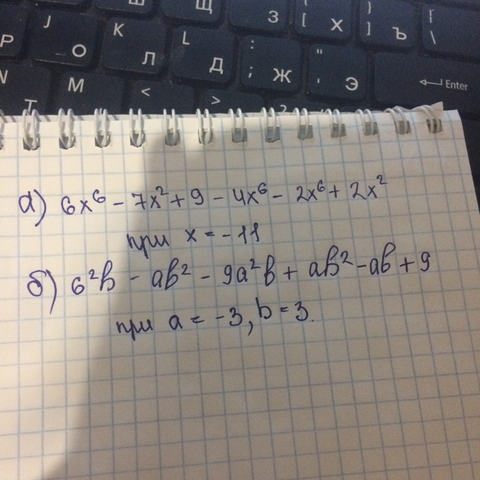 J
K
L
З
Х
Ъ
О
Л
Д
Ж
Э
Enter
M
а) 6x⁶ - 7x² + 9 - 4x⁶ - 2x⁶ + 2x²
при x = -11
б) 6²b - ab² - 9a²b + ab² - ab + 9
при a = -3, b = 3.